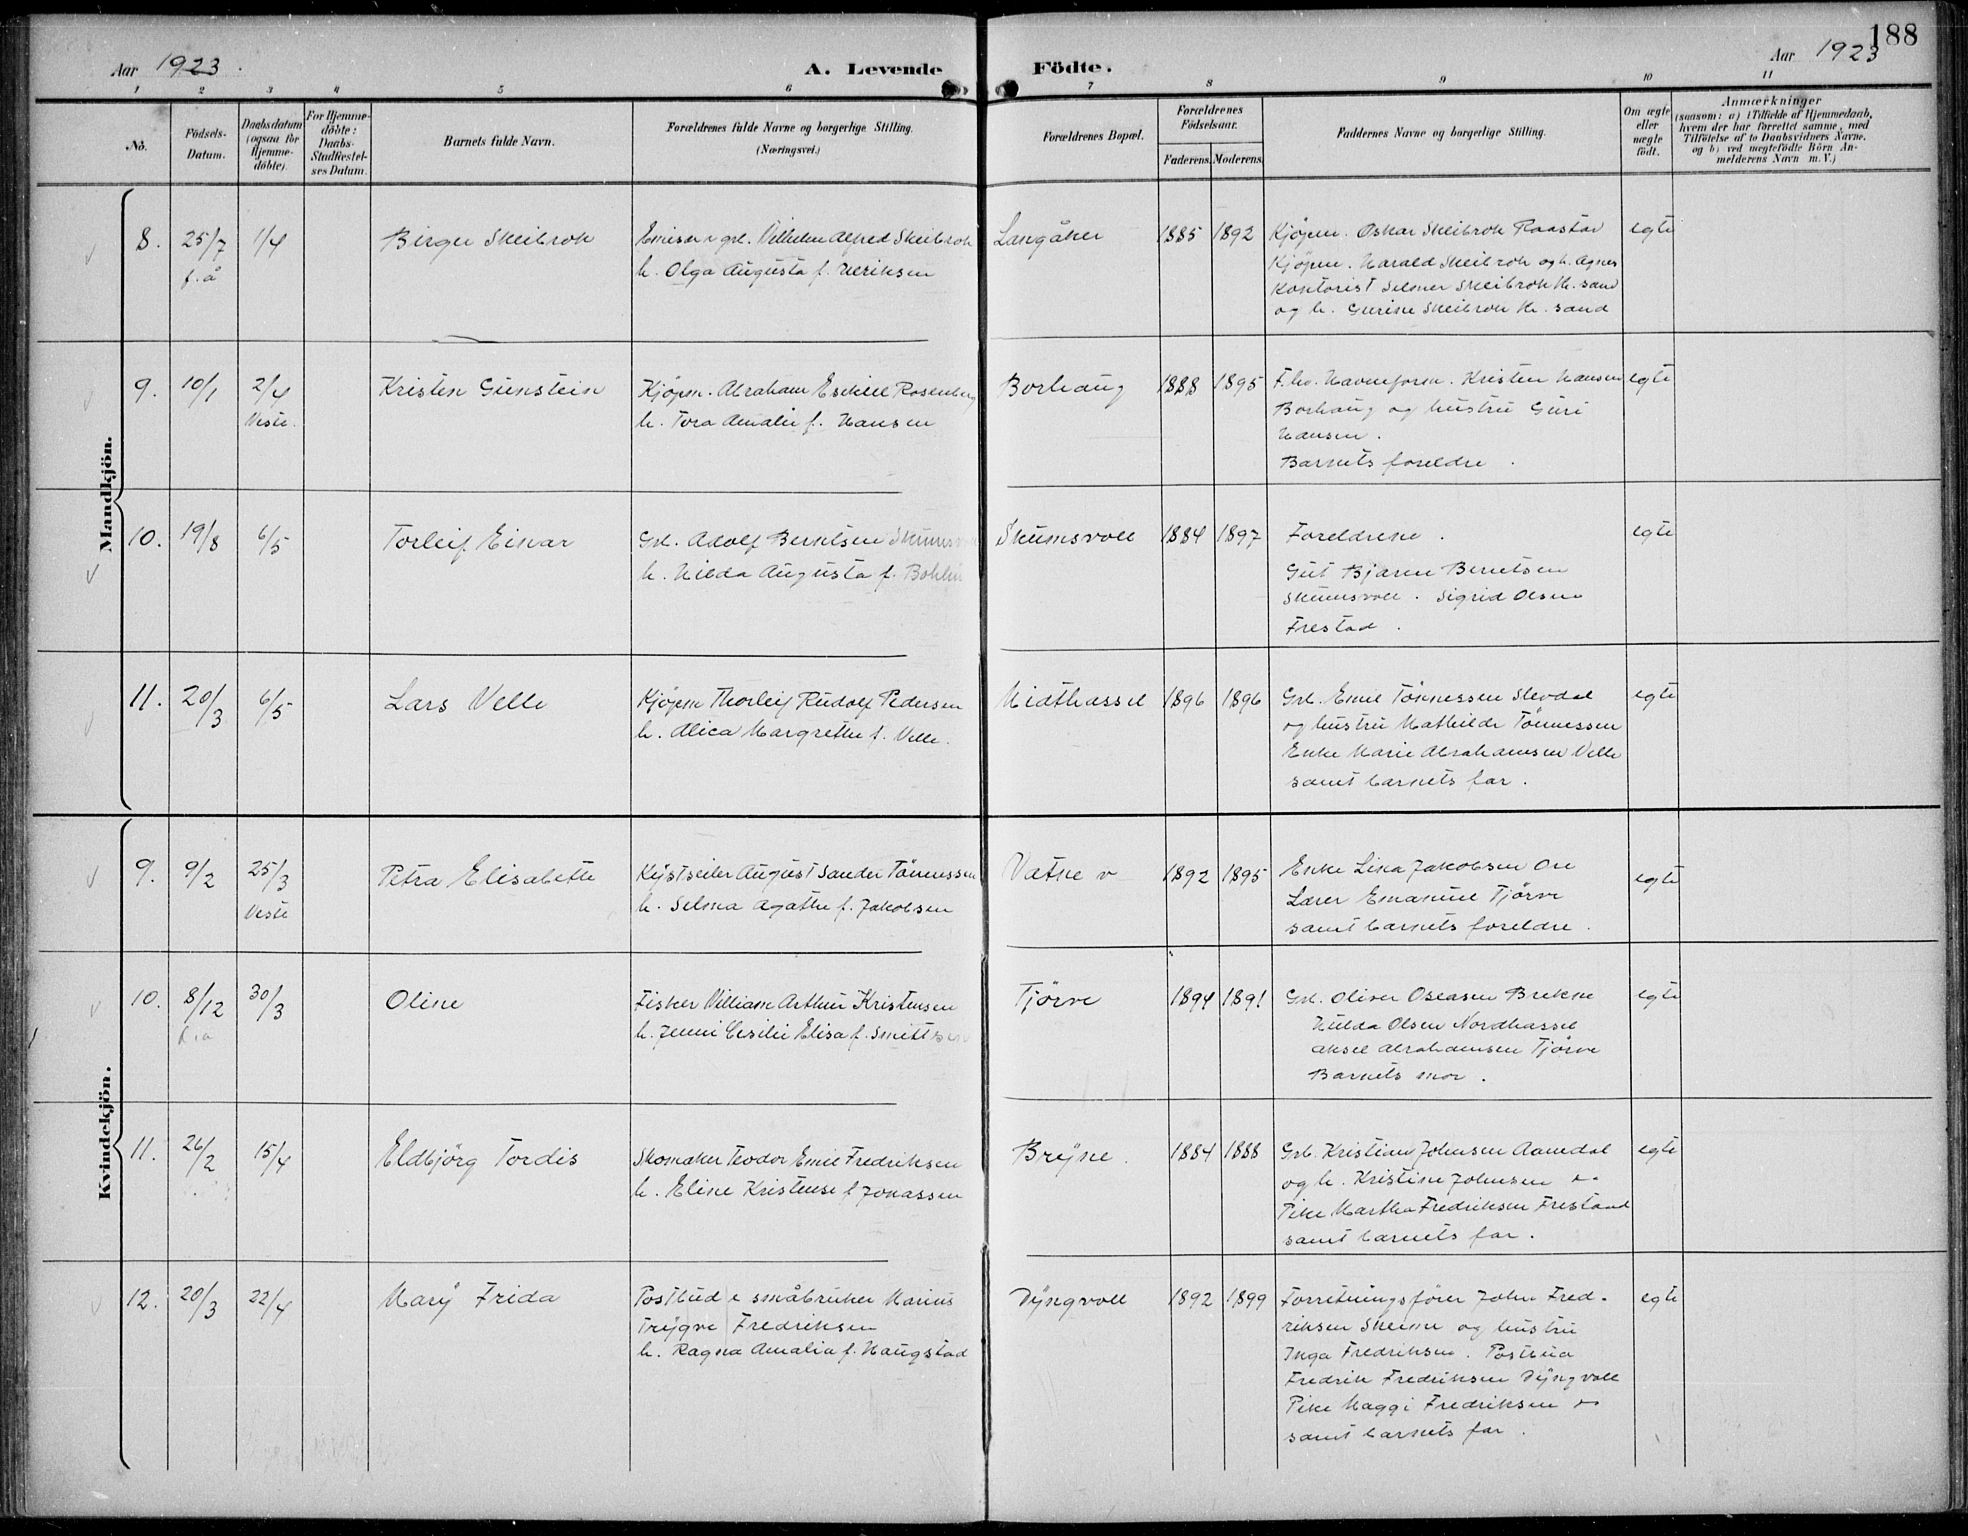 188
Aar 1923.
A. Levende Födte.
Aar 1923
1 2 3 4 5 6 7 8 9 10 11
No.
Födsels-Datum.
Daabsdatum (ogsaa for Hjemme-döbte).
For Hjemme-döbte: Daabs-Stadfæstel-ses Datum.
Barnets fulde Navn.
Forældrenes fulde Navne og borgerlige Stilling. (Næringsvei.)
Forældrenes Bopæl.
Forældrenes Födselsaar.
Faderens. Moderens.
Faddernes Navne og borgerlige Stilling.
Om ægte eller uægte födt.
Anmærkninger
(saasom: a) i Tilfælde af Hjemmedaab, hvem der har forrettet samme, med Tilföielse af to Daabsvidners Navne. og b) ved uægtefödte Börn An-melderens Navn m. V.)
Mandkjön.
8. 25/7 f.å 1/4 Birger Skeibrok
grl. Vilhelm Alfred Skeibrok
h. Olga Augusta f. Ueriksen
Langåker 1885 1892
Kjøpm. Oskar Skeibrok Raastad
Kjøpm. Harald Skeibrok og h. Agnes
Kontorist Selmer Skeibrok Kr. sand
og h. Gurine Skeibrok Kr. sand
egte
9. 10/1 2/4 Viste. Kristen Gunstein
Kjöpm. Abraham Esekiel Rosenberg
h. Tora Amalie f. Hansen
Borhaug 1888 1895
F.hv. Havneform. Kristen Hansen
Borhaug og hustru Guri
Hansen.
Barnets foreldre.
egte
10. 19/8 6/5 Torleif Einar
Grl. Adolf Berntsen
h. Hilda Augusta f. Bohlin
Skumsvoll 1884 1897
Foreldrene.
Gut Bjarne Berntsen
Skumsvoll. Sigrid Olsen
Frestad.
egte
11. 20/3 6/5 Lars Velle
Kjöpm Thorleif Rudolf Pedersen
h. Alica Margrethe f. Velle.
Midthassel 1896 1896
Grl. Emil Tönnessen Slevdal
og hustru Mathilde Tönnessen
Enke Marie Abrahamsen Velle
samt barnets far.
egte
Kvindekjön.
9. 9/2 25/3 Viste Petra Elisabette
August Sander Tönnessen
h. Selma Agathe f. Jakobsen
Vatne v 1892 1895
Enke Lina Jakobsen Ore
Lærer Emanuel Tjörve
samt barnets foreldre.
egte
10. 8/12 f.a 30/3 Oline
Fisker Villiam Arthur Kristensen
h. Jenni Cesilie Elisa f.
Tjörve 1894 1891
Grl. Oliver Oseasen Brekne
Hulda Olsen Nordhassel
Aksel Abrahamsen Tjörve
Barnets mor.
egte
11. 26/2 15/4 Eldbjörg Tordis
Skomaker Teodor Emil Fredriksen
h. Eline Kristense f Jonassen
Brÿne. 1884 1888
Grl. Kristian Johnsen Aamdal
og h. Kristine Johnsen
Pike Martha Fredriksen Frestaad
samt barnets far.
egte
12. 20/3 22/4 Marÿ Frida
Postbud & småbruker Marius
Trÿgve Fredriksen
h. Ragna Amalia f. Haugstad
Dÿngvoll 1892 1899
Forretningsfører John Fred-
riksen Skeime og hustru
Inga Fredriksen. Postbud
Fredrik Fredriksen Dÿngvoll
Pike Maggi Fredriksen
samt barnets far.
egte